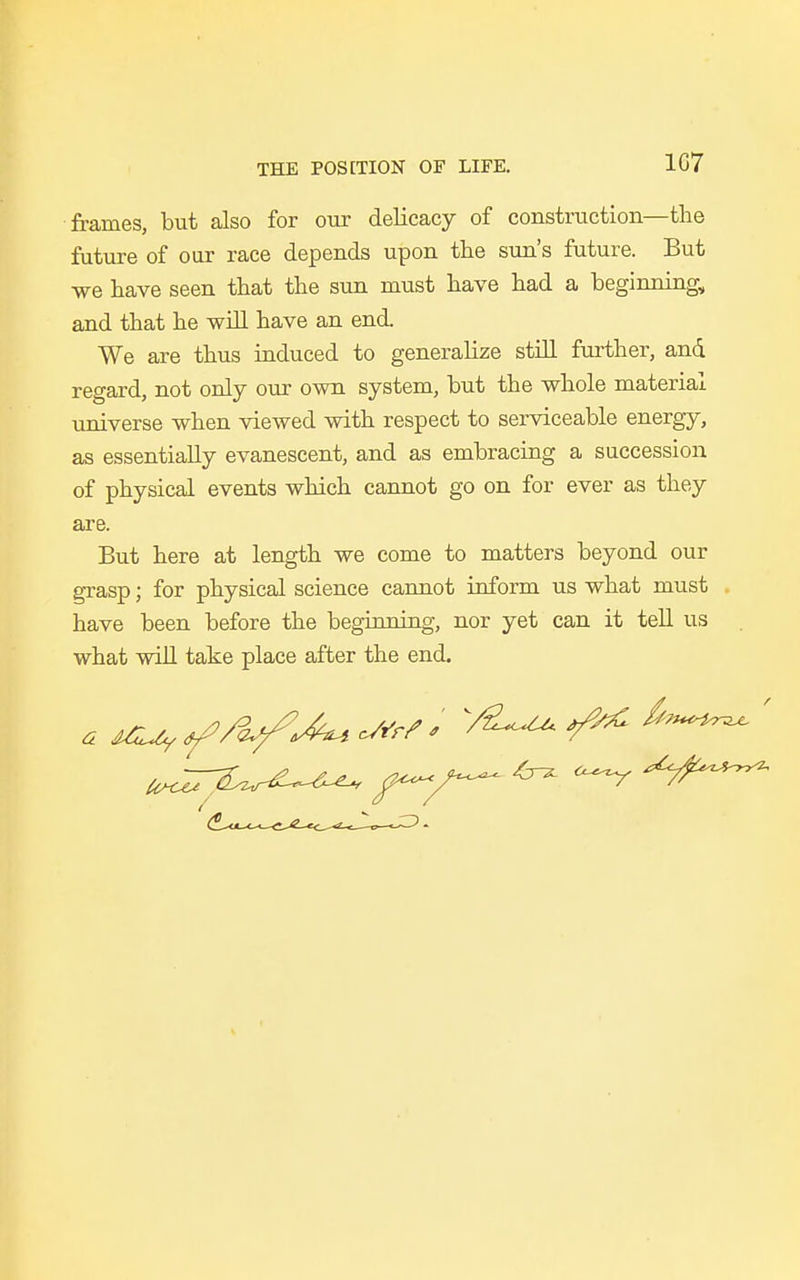 THE POSITION OF LIFE. 167
frames, but also for our delicacy of construction—the
future of our race depends upon the sun's future. But
we have seen that the sun must have had a beginning,
and that he will have an end.
We are thus induced to generalize still further, and
regard, not only our own system, but the whole material
universe when viewed with respect to serviceable energy,
as essentially evanescent, and as embracing a succession
of physical events which cannot go on for ever as they
are.
But here at length we come to matters beyond our
grasp; for physical science cannot inform us what must
have been before the beginning, nor yet can it tell us
what will take place after the end.
a study of
any